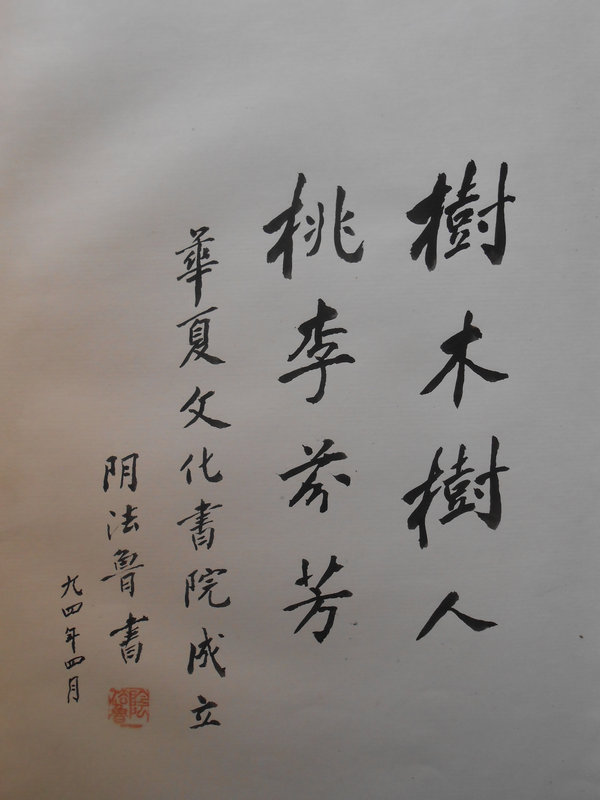 樹木樹人
桃李芬芳
華夏文化書院成立
阴法魯書
九四年四月